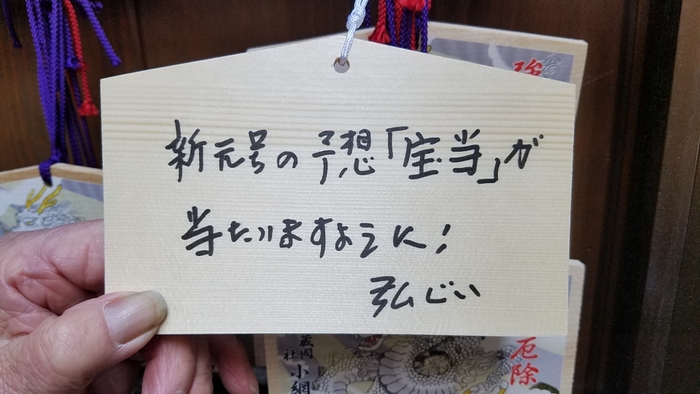 新元号の予想「宝当」が
当たりますように!
弘じい
強
厄除
蔵国
社 小網